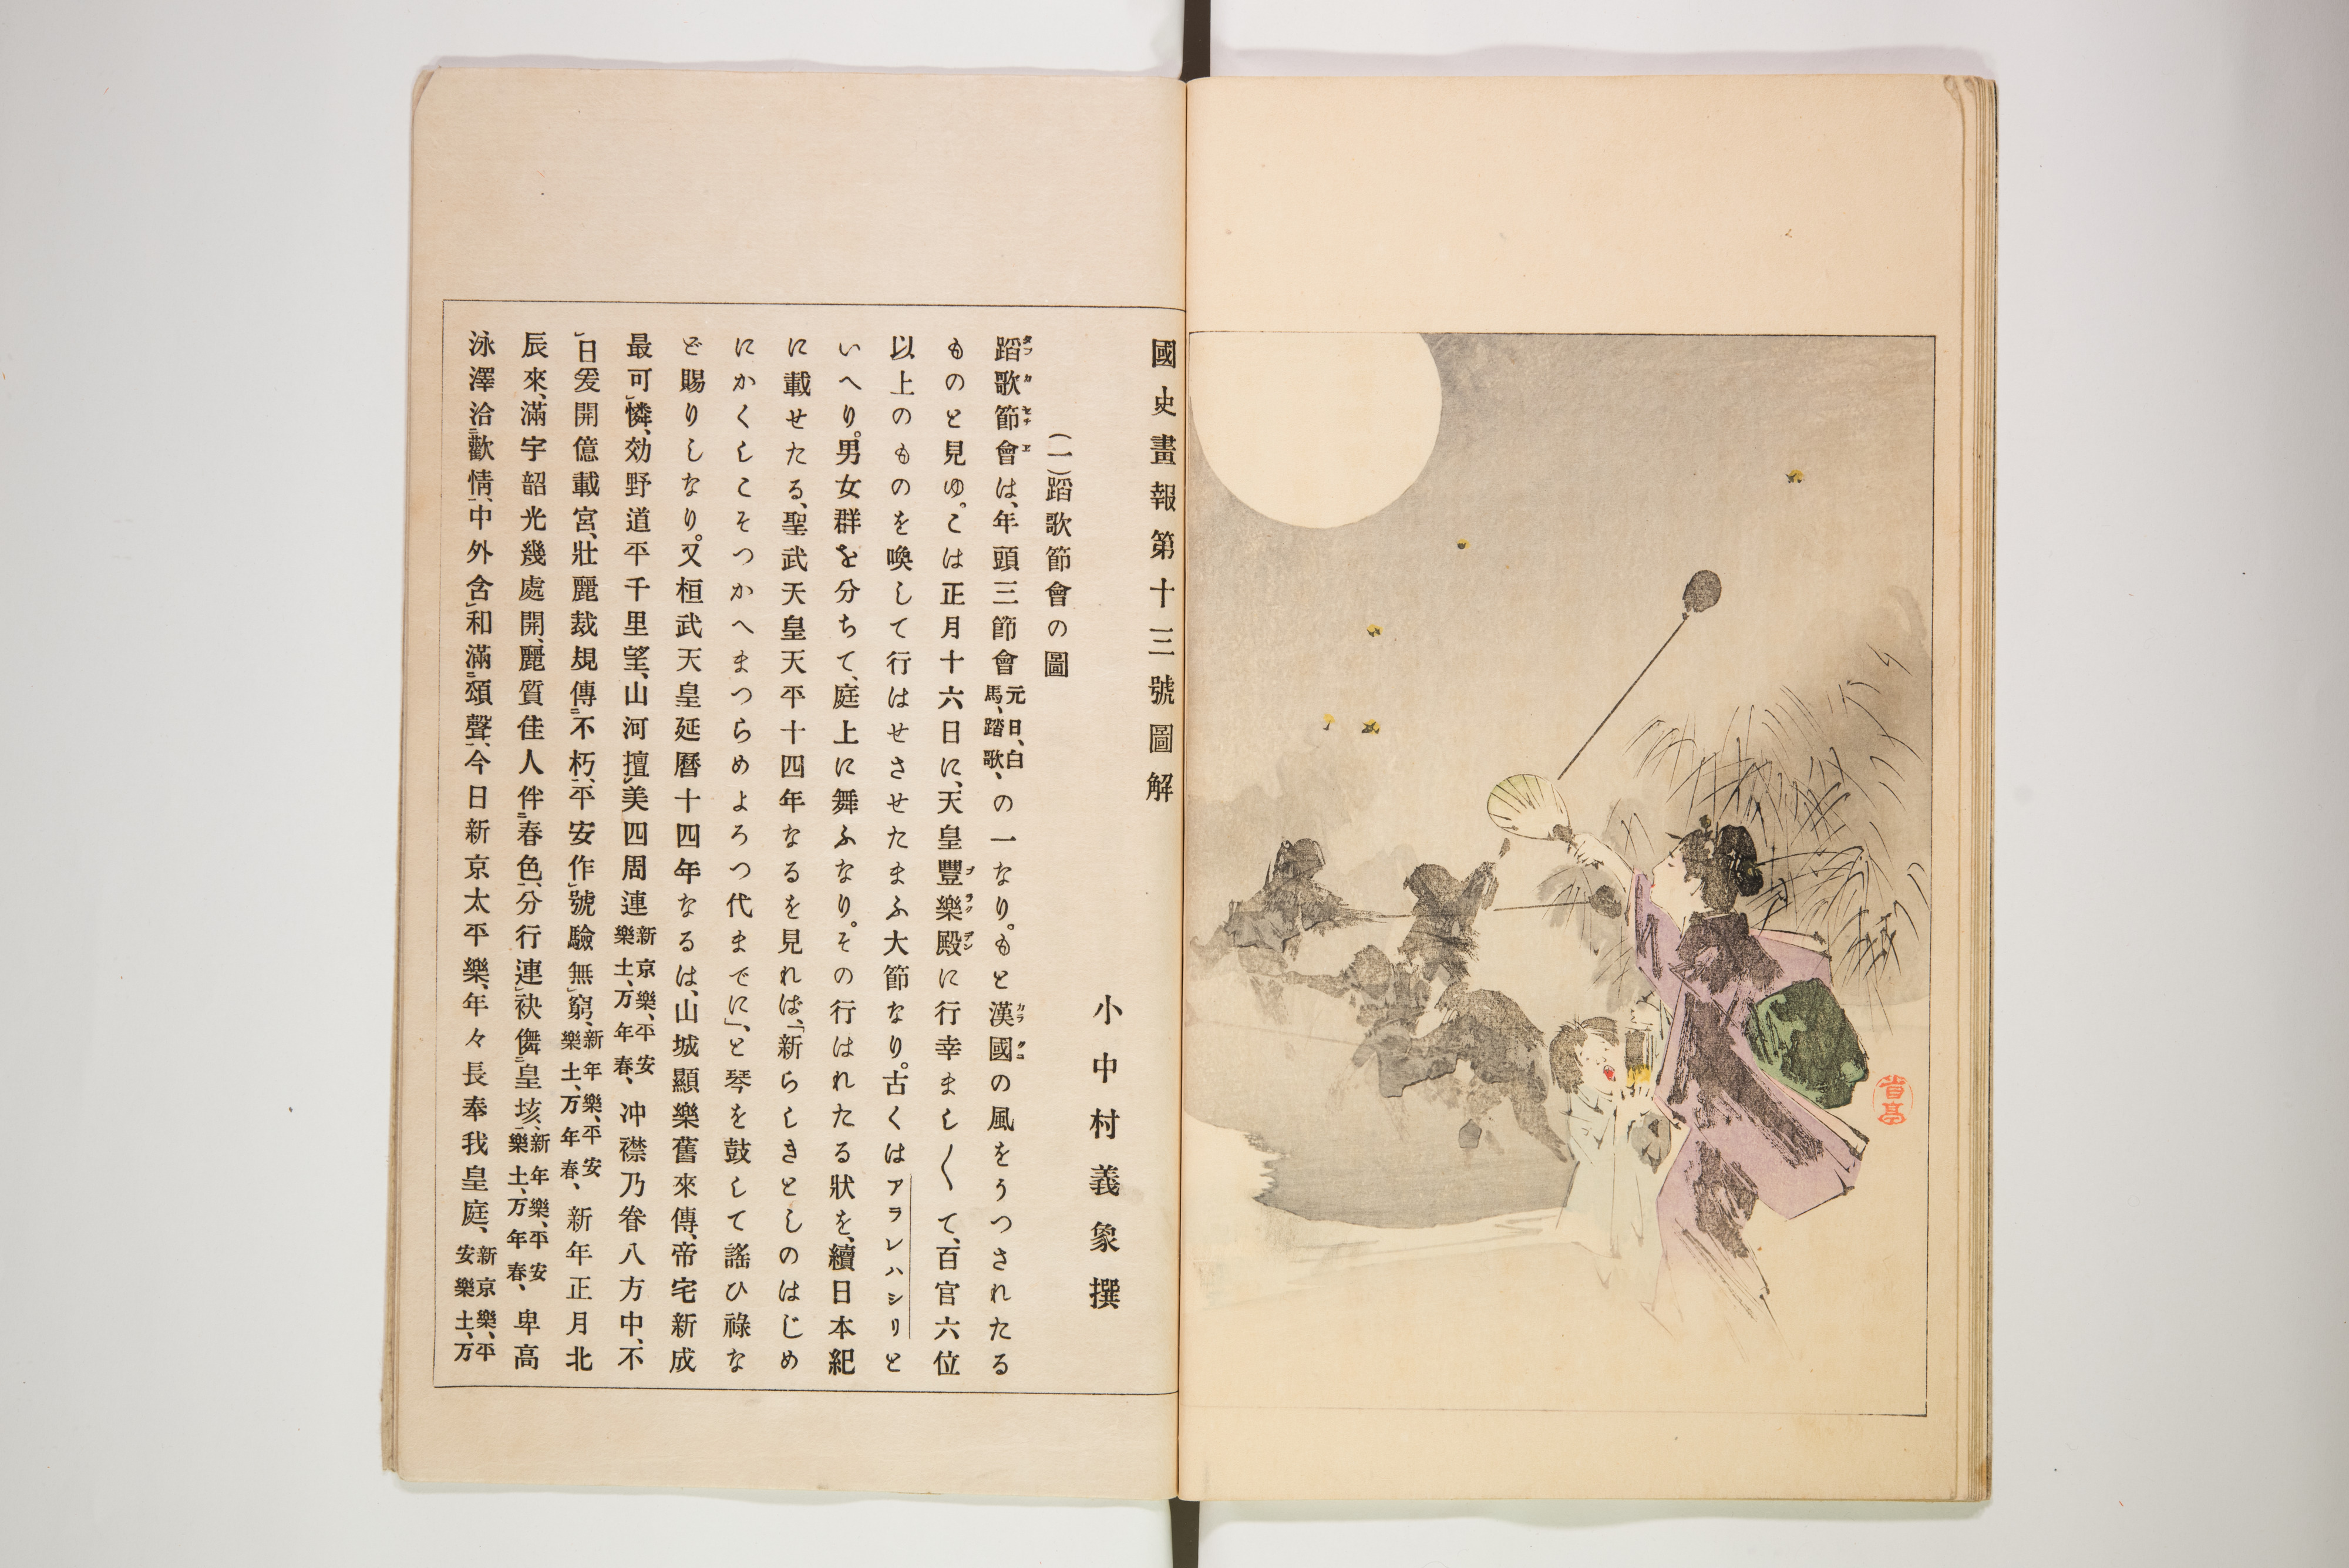 省亭
國史畫報第十三號圖解
小中村義象撰
(一)蹈歌節會の圖
蹈歌節會は、年頭三節會元日、白馬、踏歌、の一なり。もと漢國の風をうつされたる
ものと見ゆ。こは正月十六日に、天皇豐樂殿に行幸まし〱て、百官六位
以上のものを喚して行はせさせたまふ大節なり。古くはアラレハシリと
いへり。男女群を分ちて、庭上に舞ふなり。その行はれたる狀を、續日本紀
に載せたる、聖武天皇天平十四年なるを見れば、「新らしきとしのはじめ
にかくしこそつかへまつらめよろつ代までに」、と琴を鼓して謠ひ祿な
ど賜りしなり。又桓武天皇延曆十四年なるは、山城顯樂舊來傳、帝宅新成
最可憐、効野道平千里望、山河擅美四周連新京樂、平安樂土、万年春、冲襟乃眷八方中、不
日爰開億載宮、壯麗裁規傳不朽、平安作號驗無窮、新年樂、平安樂土、万年春、新年正月北
辰來、滿宇韶光幾處開、麗質佳人伴春色、分行連袂儛皇垓、新年樂、平安樂土、万年春、卑高
泳澤洽歡情、中外含和滿頌聲、今日新京太平樂、年々長奉我皇庭、新京樂、平安樂土、万